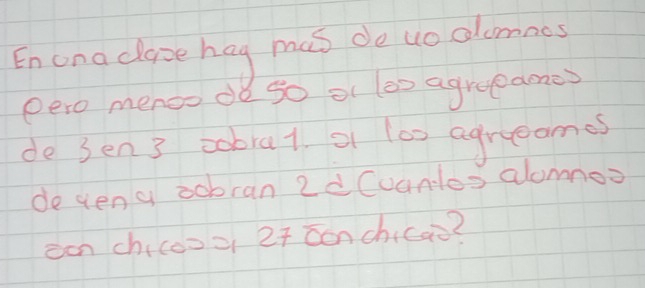 En una clase hay mas de 40 alumnos
pero menos de 50 si los agrupamos
de 3 en 3 sobra 1. si los agrupamos
de 4 en 4 sobran 2 ¿Cuantos alumnos
son chicos si 27 son chicas?